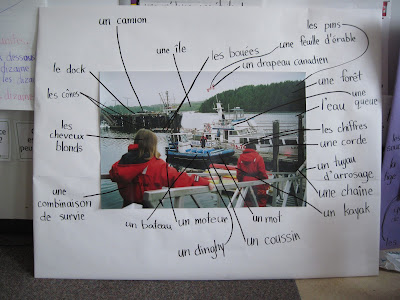 un camion
les pins
une île
les bouées
une feuille d'érable
un drapeau canadien
le dock
une forêt
les cônes
l'eau
une
gueue
les chiffres
les
cheveux
blonds
une corde
un tuyau
d'arrosage
une chaîne
une
combinaison
de survie
un kayak
un bateau
un moteur
un mot
un dinghy
un coussin